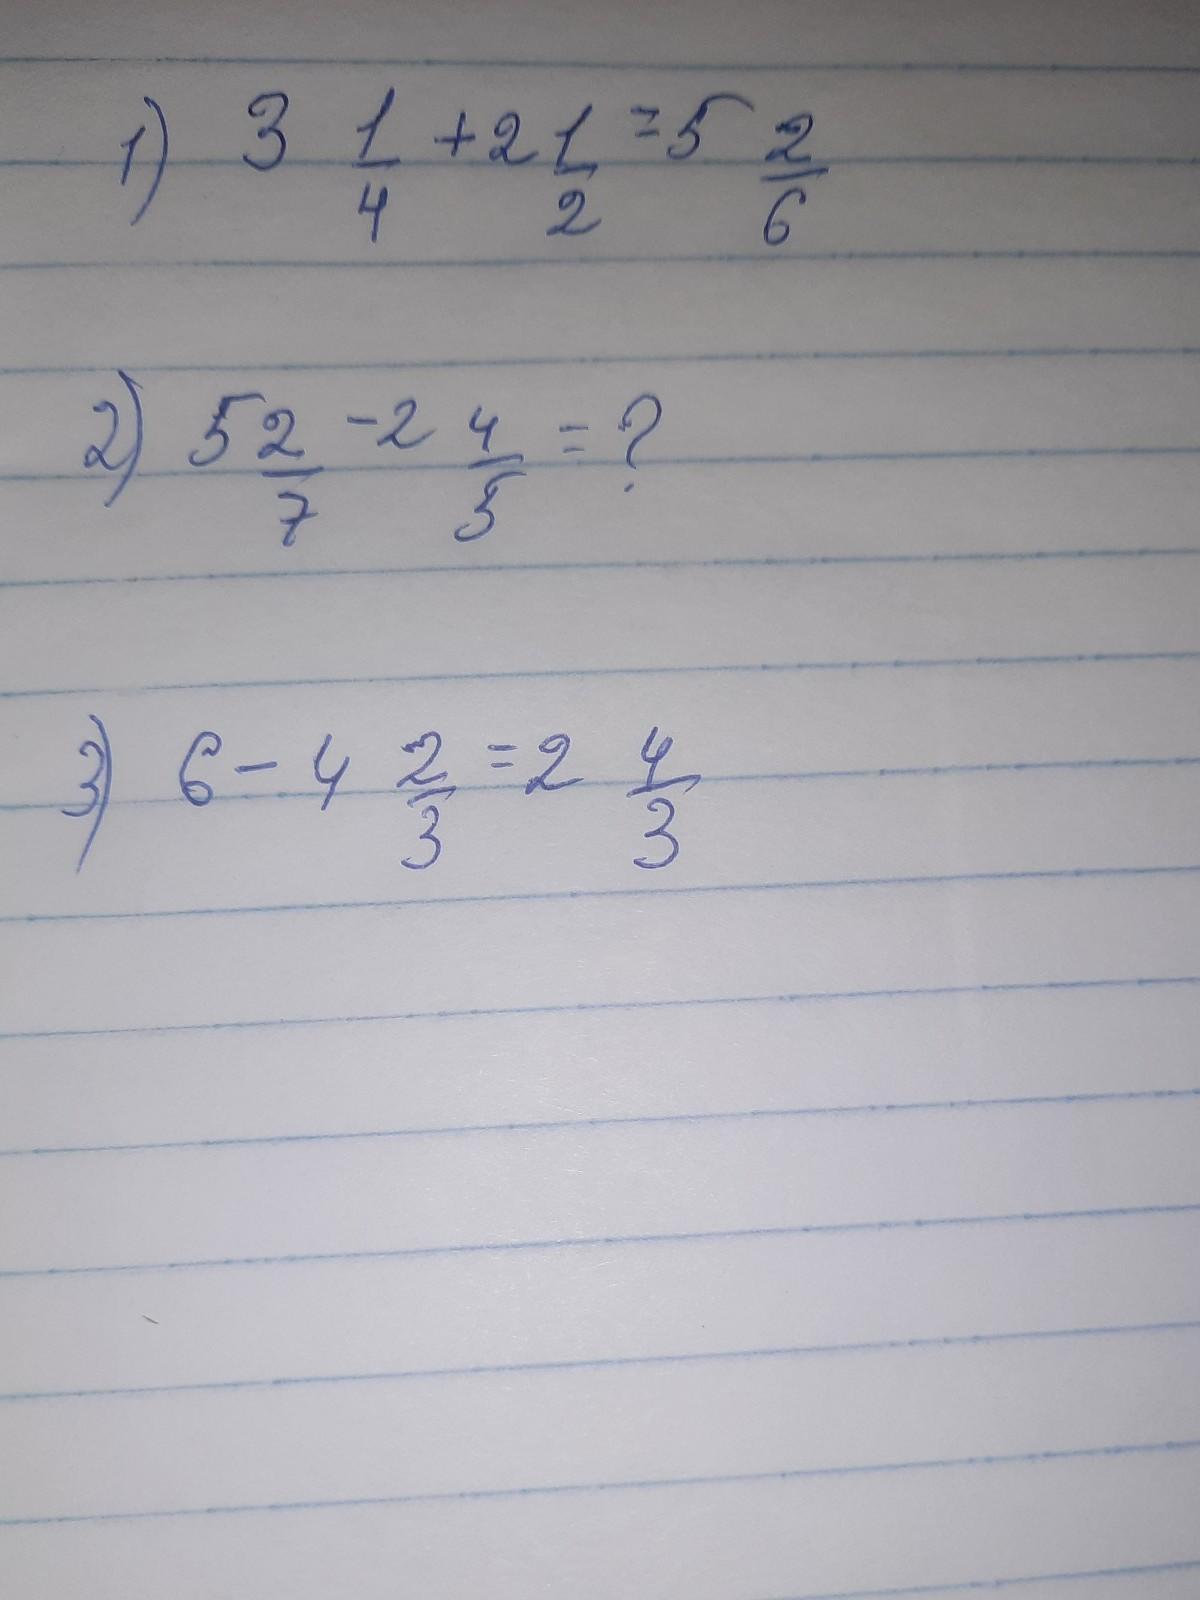 1) 3 1/4 + 2 1/2 = 5 2/6
2) 5 2/7 - 2 4/5 = ?
3) 6 - 4 2/3 = 2 4/3